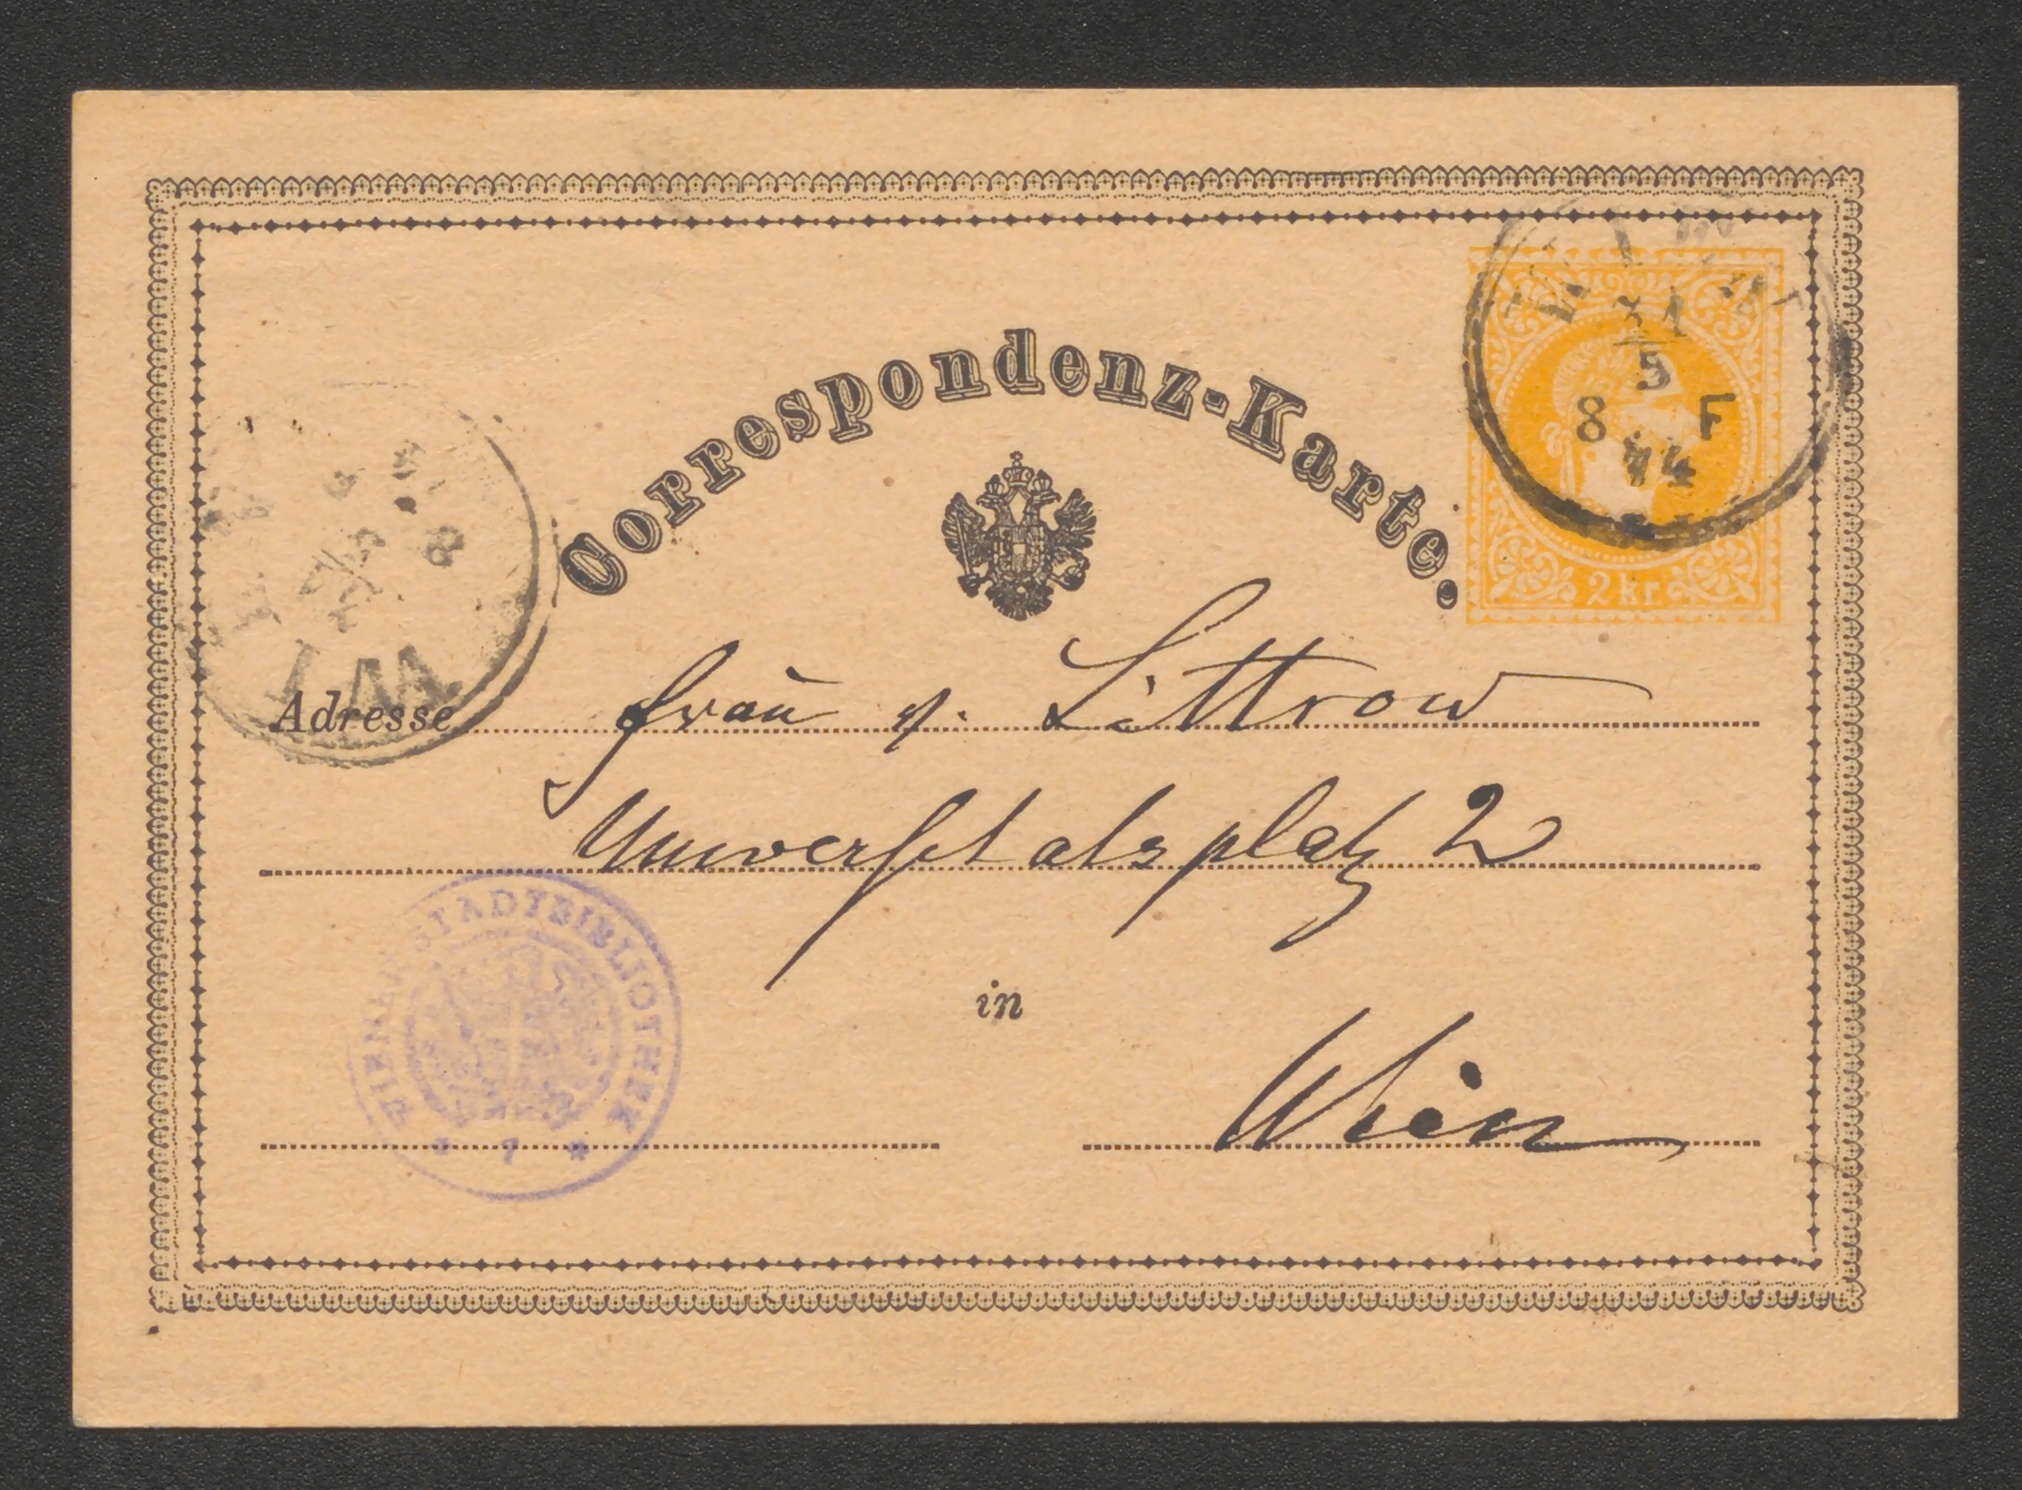 Correspondenz-Karte.
31
5
8 F
74
2 kr.
Adresse Frau v. Littrow
Universitätsplatz 2
WIENER STADTBIBLIOTHEK
in
Wien